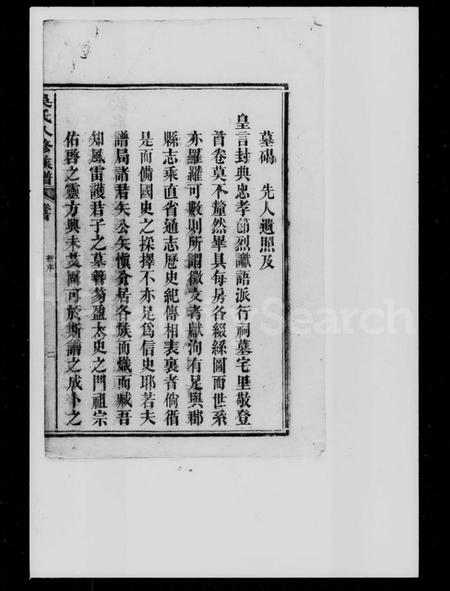 墓碣　先人遺照及
皇言封典忠孝節烈讖語派行祠墓宅里敬登
首卷莫不釐然畢具每房各綴絲圖而世系
亦羅羅可數則所謂徵文考獻洵有足與郡
縣志乘直省通志歷史紀傳相表裏者倘循
是而備國史之採擇不亦足為信史耶若夫
譜局諸君矢公矢慎分居各族而熾而臧吾
知風雷護君子之墓簪笏盈太史之門祖宗
佑啓之靈方興未艾圖可於斯譜之成卜之
吳氏八修族譜
卷首
新序
二